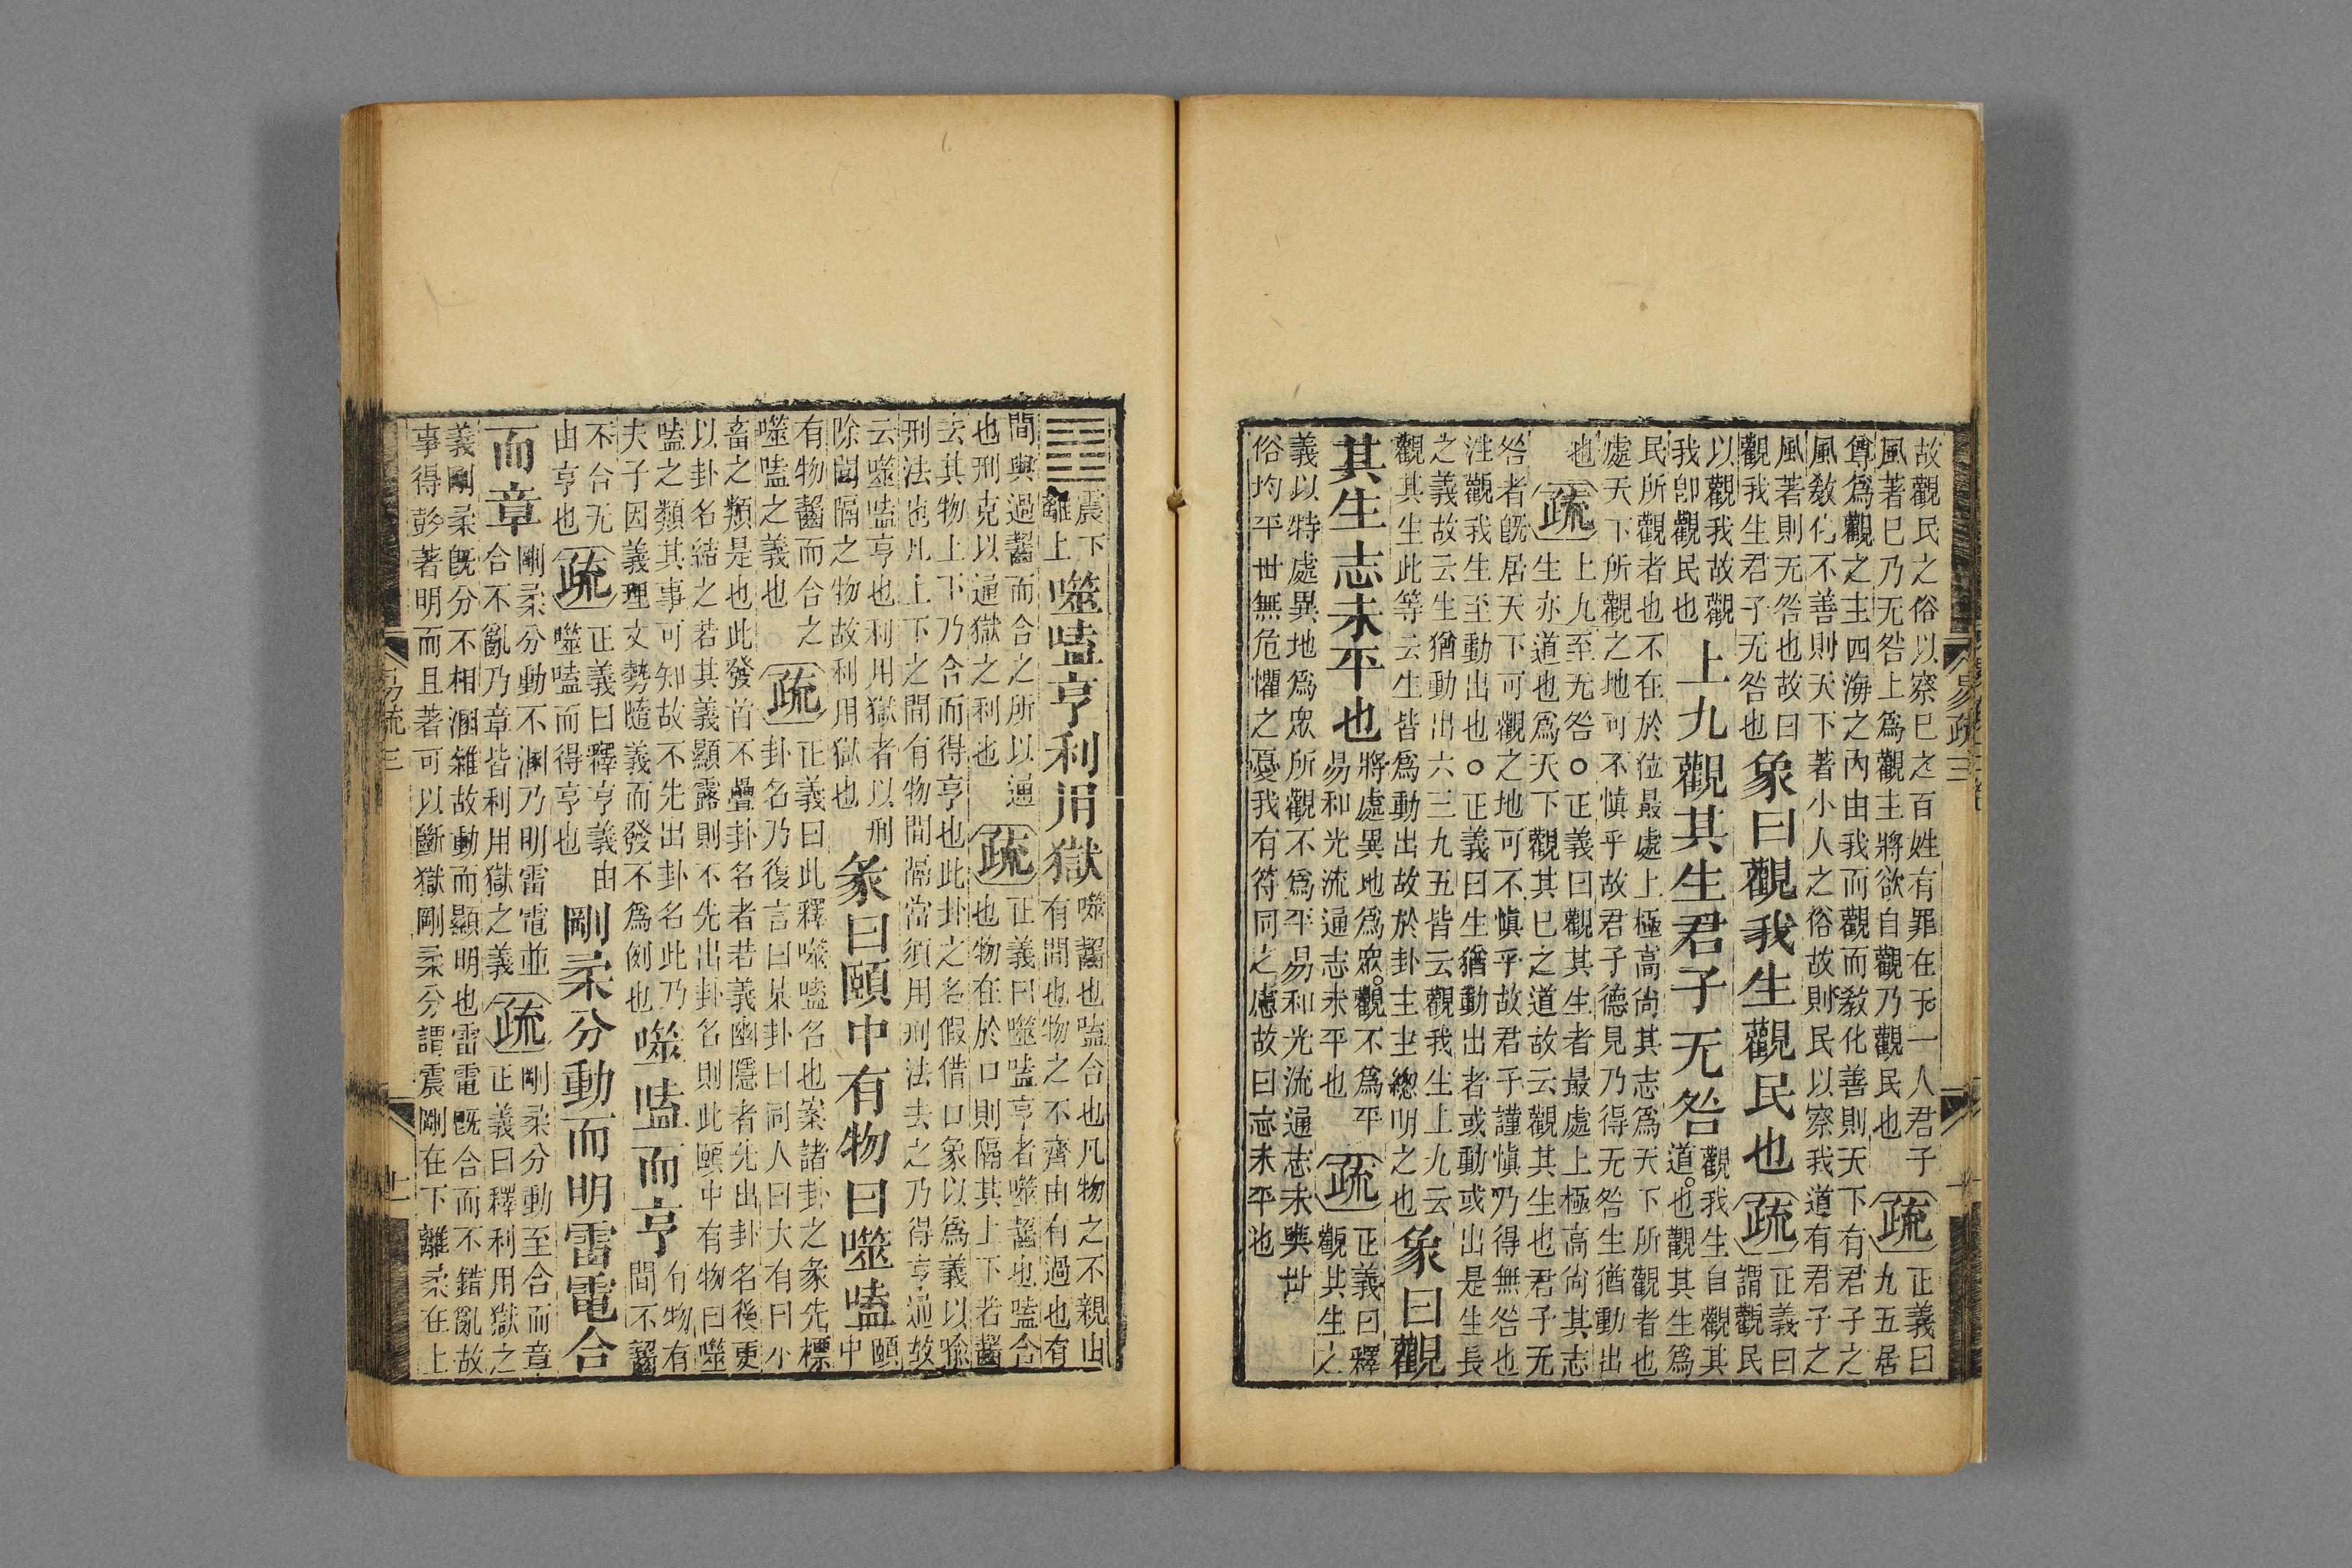 故觀民之俗以察已之百姓有罪在于一人君子
風著已乃无咎上爲觀主將欲自觀乃觀民也
疏
正義曰
九五居
尊爲觀之主四海之內由我而觀而敎化善則天下有君子之
風敎化不善則天下著小人之俗故則民以察我道有君子之
風著則无咎也故曰
觀我生君子无咎也
象曰觀我生觀民也
疏
正義曰
謂觀民
以觀我故觀
我卽觀民也
上九觀其生君子无咎
觀我生自觀其
道也觀其生爲
民所觀者也不在於位最處上極高尙其志爲天下所觀者也
處天下所觀之地可不慎乎故君子德見乃得无咎生猶動出
也
疏
上九至无咎○正義曰觀其生者最處上極高尙其志
生亦道也爲天下觀其已之道故云觀其生也君子无
咎者旣居天下可觀之地可不慎乎故君子謹慎乃得無咎也
注觀我生至動出也○正義曰生猶動出者或動或出是生長
之義故云生猶動出六三九五皆云觀我生上九云
觀其生此等云生皆爲動出故於卦主主總明之也
象曰觀
其生志未平也
將處異地爲眾觀不爲平
易和光流通志未平也
疏
正義曰釋
觀其生之
義以特處異地爲眾所觀不爲平易和光流通志未與世
俗均平世無危懼之憂我有符同之慮故曰志未平也
易疏三
十
䷔
震下
離上
噬嗑亨利用獄
噬齧也嗑合也凡物之不親由
有間也物之不齊由有過也有
間與過齧而合之所以通
也刑克以通獄之利也
疏
正義曰噬嗑亨者噬齧也嗑合
也物在於口則隔其上下若齧
去其物上下乃合而得亨也此卦之名假借口象以爲義以喻
刑法也凡上下之間有物間隔當須用刑法去之乃得亨通故
云噬嗑亨也利用獄者以刑
除間隔之物故利用獄也
彖曰頤中有物曰噬嗑
頤
中
有物齧而合之
噬嗑之義也
疏
正義曰此釋噬嗑名也案諸卦之彖先標
卦名乃復言曰某卦曰同人曰大有曰小
畜之類是也此發首不疊卦名者若義幽隱者先出卦名後更
以卦名結之若其義顯露則不先出卦名則此頤中有物曰噬
嗑之類其事可知故不先出卦名此乃
夫子因義理文勢隨義而發不爲例也
噬嗑而亨
有物有
間不齧
不合无
由亨也
疏
正義曰釋亨義由
噬嗑而得亨也
剛柔分動而明雷電合
而章
剛柔分動不溷乃明雷電並
合不亂乃章皆利用獄之義
疏
剛柔分動至合而章
正義曰釋利用獄之
義剛柔旣分不相溷雜故動而顯明也雷電旣合而不錯亂故
事得彰著明而且著可以斷獄剛柔分謂震剛在下離柔在上